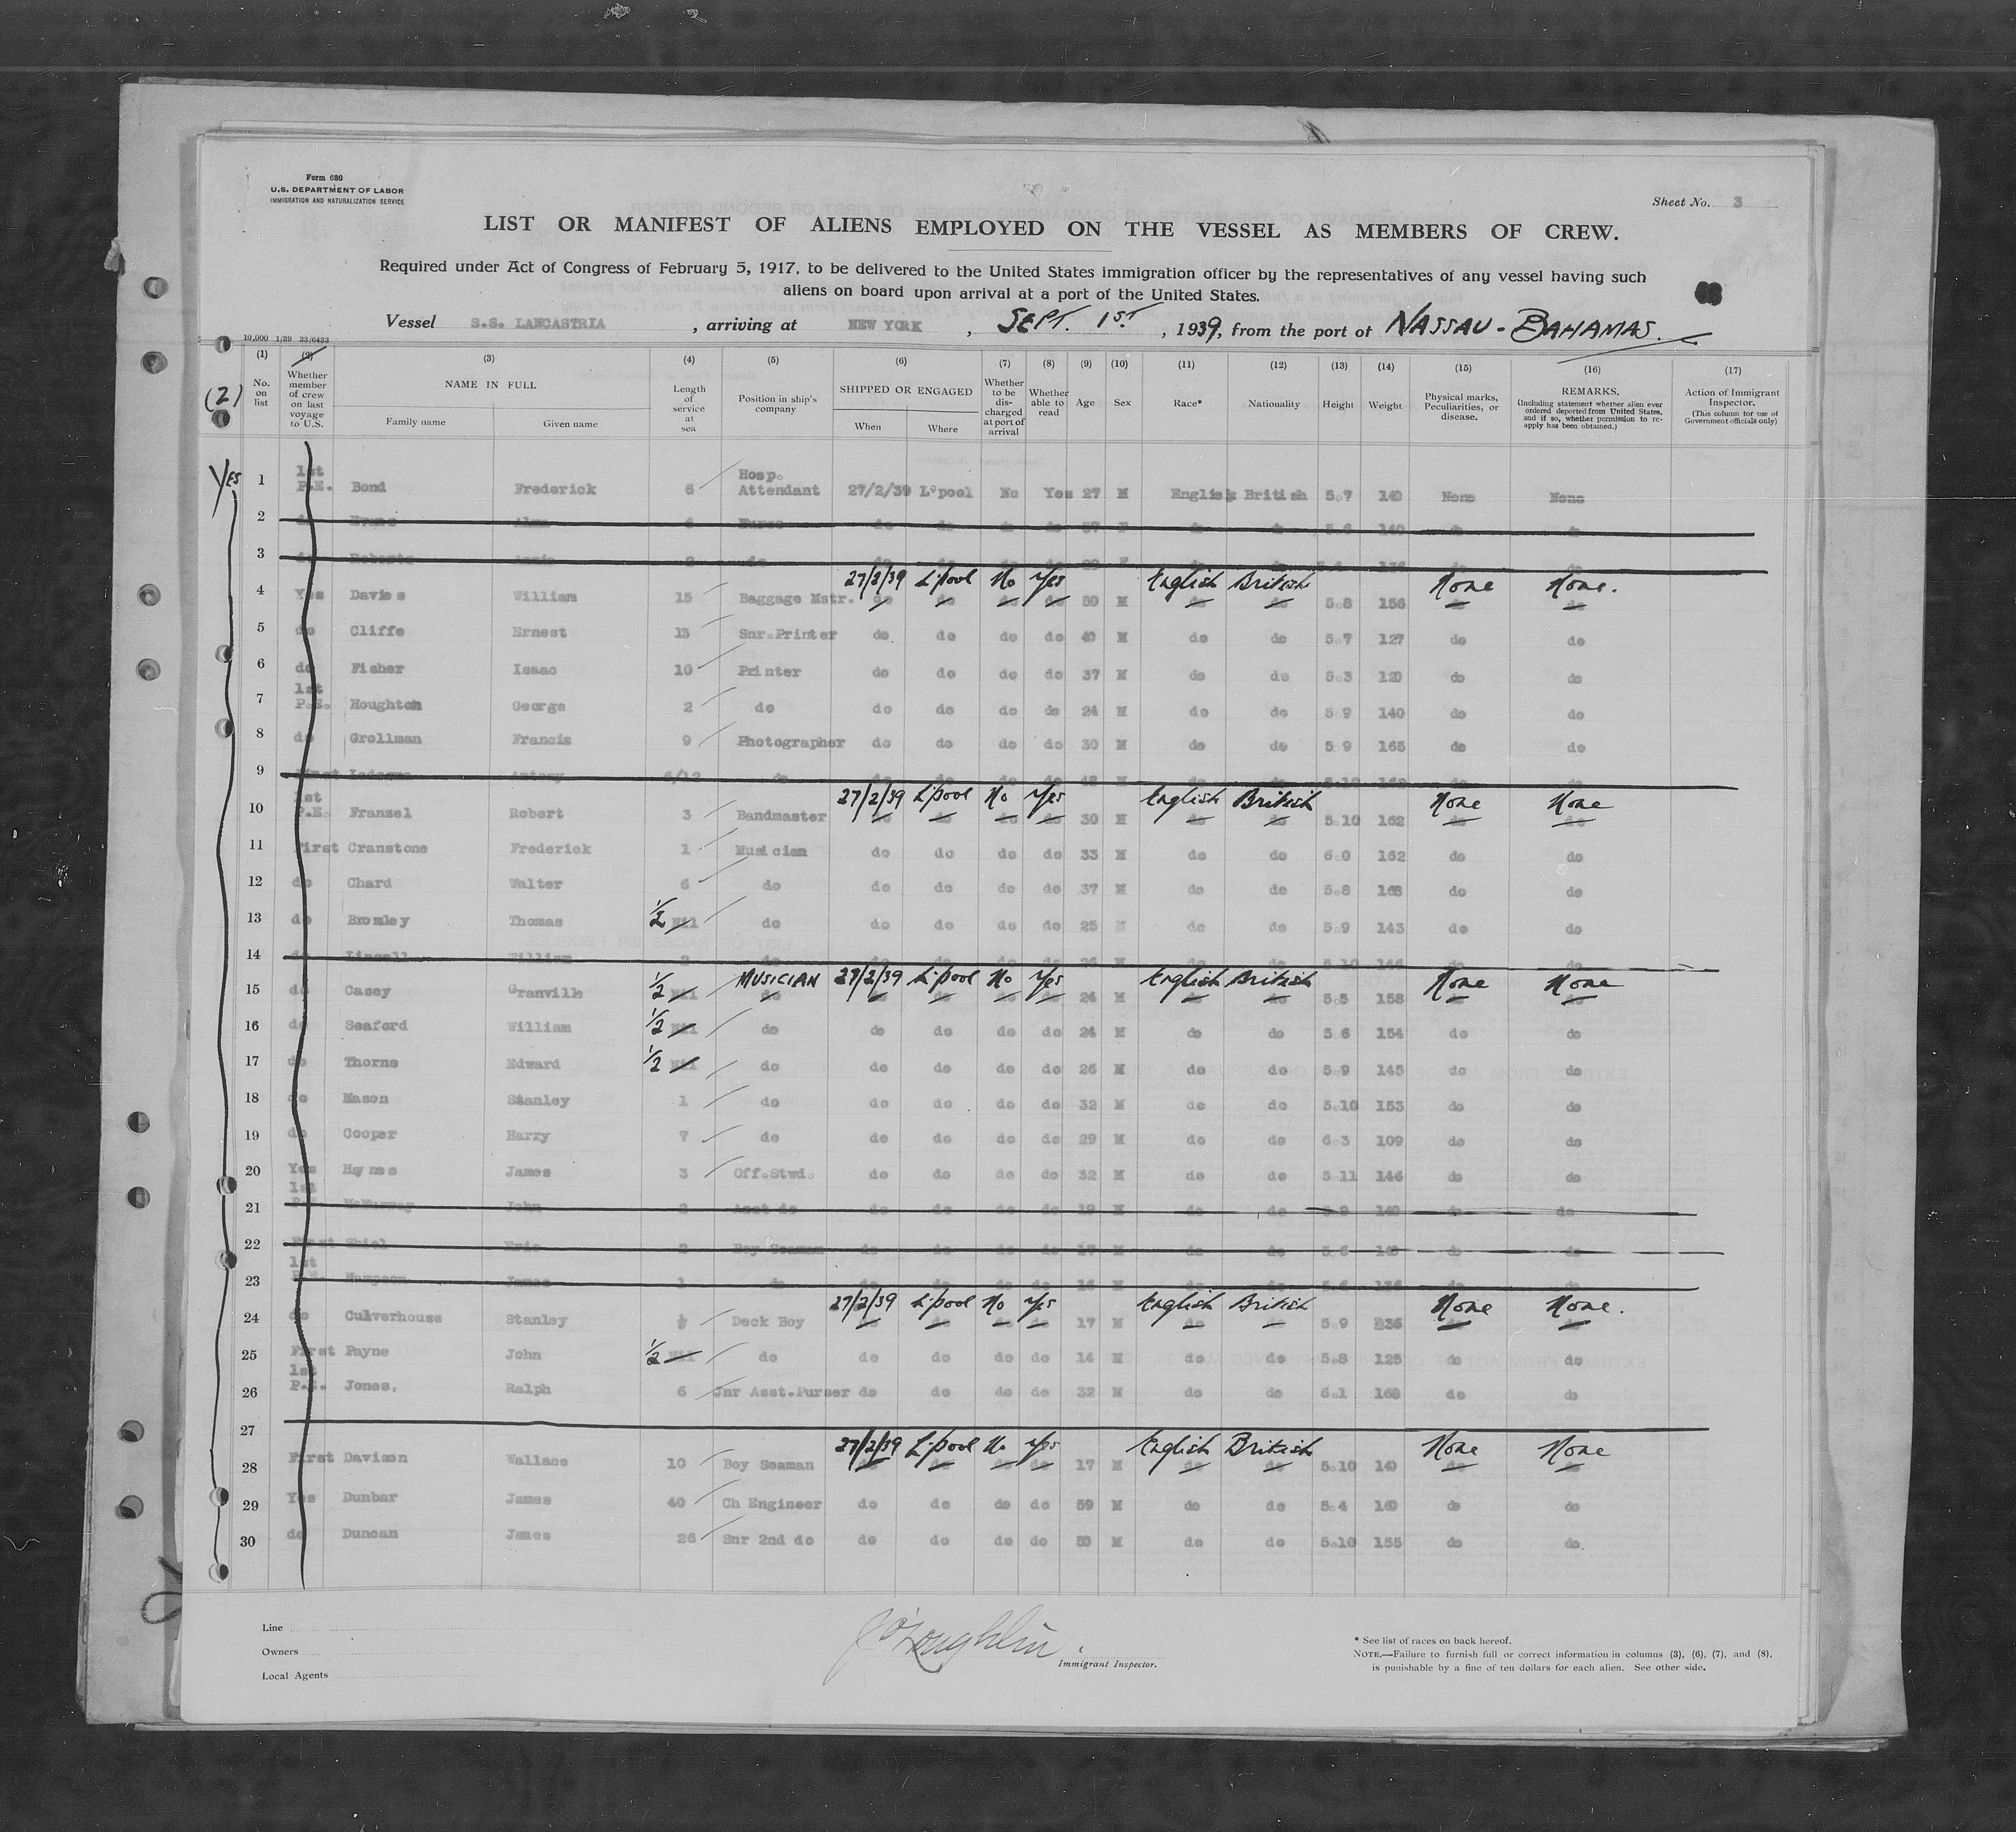 Form 680
U.S. DEPARTMENT OF LABOR
IMMIGRATION AND NATURALIZATION SERVICE
Sheet No. 3
LIST OR MANIFEST OF ALIENS EMPLOYED ON THE VESSEL AS MEMBERS OF CREW.
Required under Act of Congress of February 5, 1917, to be delivered to the United States immigration officer by the representatives of any vessel having such
aliens on board upon arrival at a port of the United States.
Vessel S.S. LANCASTRIA , arriving at NEW YORK , SEPT. 1ST , 1939, from the port of NASSAU - BAHAMAS.
10,000 1/39 33/6433
(1) (2) (3) (4) (5) (6) (7) (8) (9) (10) (11) (12) (13) (14) (15) (16) (17)
(2)
No. on list
Whether member of crew on last voyage to U.S.
NAME IN FULL
Family name Given name
Length of service at sea
Position in ship's company
SHIPPED OR ENGAGED
When Where
Whether to be discharged at port of arrival
Whether able to read
Age Sex Race* Nationality Height Weight
Physical marks, Peculiarities, or disease.
REMARKS.
(Including statement whether alien ever ordered deported from United States, and if so, whether permission to re-apply has been obtained.)
Action of Immigrant Inspector.
(This column for use of Government officials only)
Yes
1 1st P.E. Bond Frederick 6 Hosp. Attendant 27/2/39 L'pool No Yes 27 M English British 5.7 140 None None
2 do do do 140 do
3 do do
27/2/39 L'pool No Yes English British None None.
4 Yes Davies William 15 Baggage Mstr. do do do do 50 M do do 5.8 156 do do
5 do Cliffe Ernest 13 Snr.Printer do do do do 40 M do do 5.7 127 do do
6 do Fisher Isaac 10 Printer do do do do 37 M do do 5.3 120 do do
7 1st P.E. Houghton George 2 do do do do do 24 M do do 5.9 140 do do
8 do Grollman Francis 9 Photographer do do do do 30 M do do 5.9 165 do do
9 First 6/12 do
27/2/39 L'pool No Yes English British None None
10 1st P.E. Franzel Robert 3 Bandmaster do do do do 30 M do do 5.10 162 do do
11 First Cranstone Frederick 1 Musician do do do do 33 M do do 6.0 162 do do
12 do Chard Walter 6 do do do do do 37 M do do 5.8 168 do do
13 do Bromley Thomas 1/2 Nil do do do do do 25 M do do 5.9 143 do do
14 do William
MUSICIAN 27/2/39 L'pool No Yes English British None None
15 do Casey Granville 1/2 Nil do do do do do 24 M do do 5.5 158 do do
16 do Seaford William 1/2 Nil do do do do do 24 M do do 5.6 154 do do
17 do Thorne Edward 1/2 Nil do do do do do 26 M do do 5.9 145 do do
18 do Mason Stanley 1 do do do do do 32 M do do 5.10 153 do do
19 do Cooper Harry 7 do do do do do 29 M do do 6.3 109 do do
20 Yes Hynes James 3 Off.Stwd. do do do do 32 M do do 5.11 146 do do
21 1st McMurray John 2 Asst do do do do do 19 M do do 5.9 140 do do
22 First Shiel Eric 2 Boy Seaman do do do do 17 M do do 5.6 140 do do
23 1st P.E. James 1 do do do do do 16 M do do 5.6 do do
27/2/39 L'pool No Yes English British None None.
24 do Culverhouse Stanley ½ Deck Boy do do do do 17 M do do 5.9 136 do do
25 First Payne John 1/2 Nil do do do do do 14 M do do 5.8 125 do do
26 1st P.E. Jones. Ralph 6 Jnr Asst.Purser do do do do 32 M do do 6.1 168 do do
27
27/2/39 L'pool No Yes English British None None
28 First Davison Wallace 10 Boy Seaman do do do do 17 M do do 5.10 140 do do
29 Yes Dunbar James 40 Ch Engineer do do do do 59 M do do 5.4 160 do do
30 do Duncan James 26 Snr 2nd do do do do do 50 M do do 5.10 155 do do.
Line
Owners
Local Agents
J O'Loughlin.
Immigrant Inspector.
* See list of races on back hereof.
NOTE.—Failure to furnish full or correct information in columns (3), (6), (7), and (8),
is punishable by a fine of ten dollars for each alien. See other side.